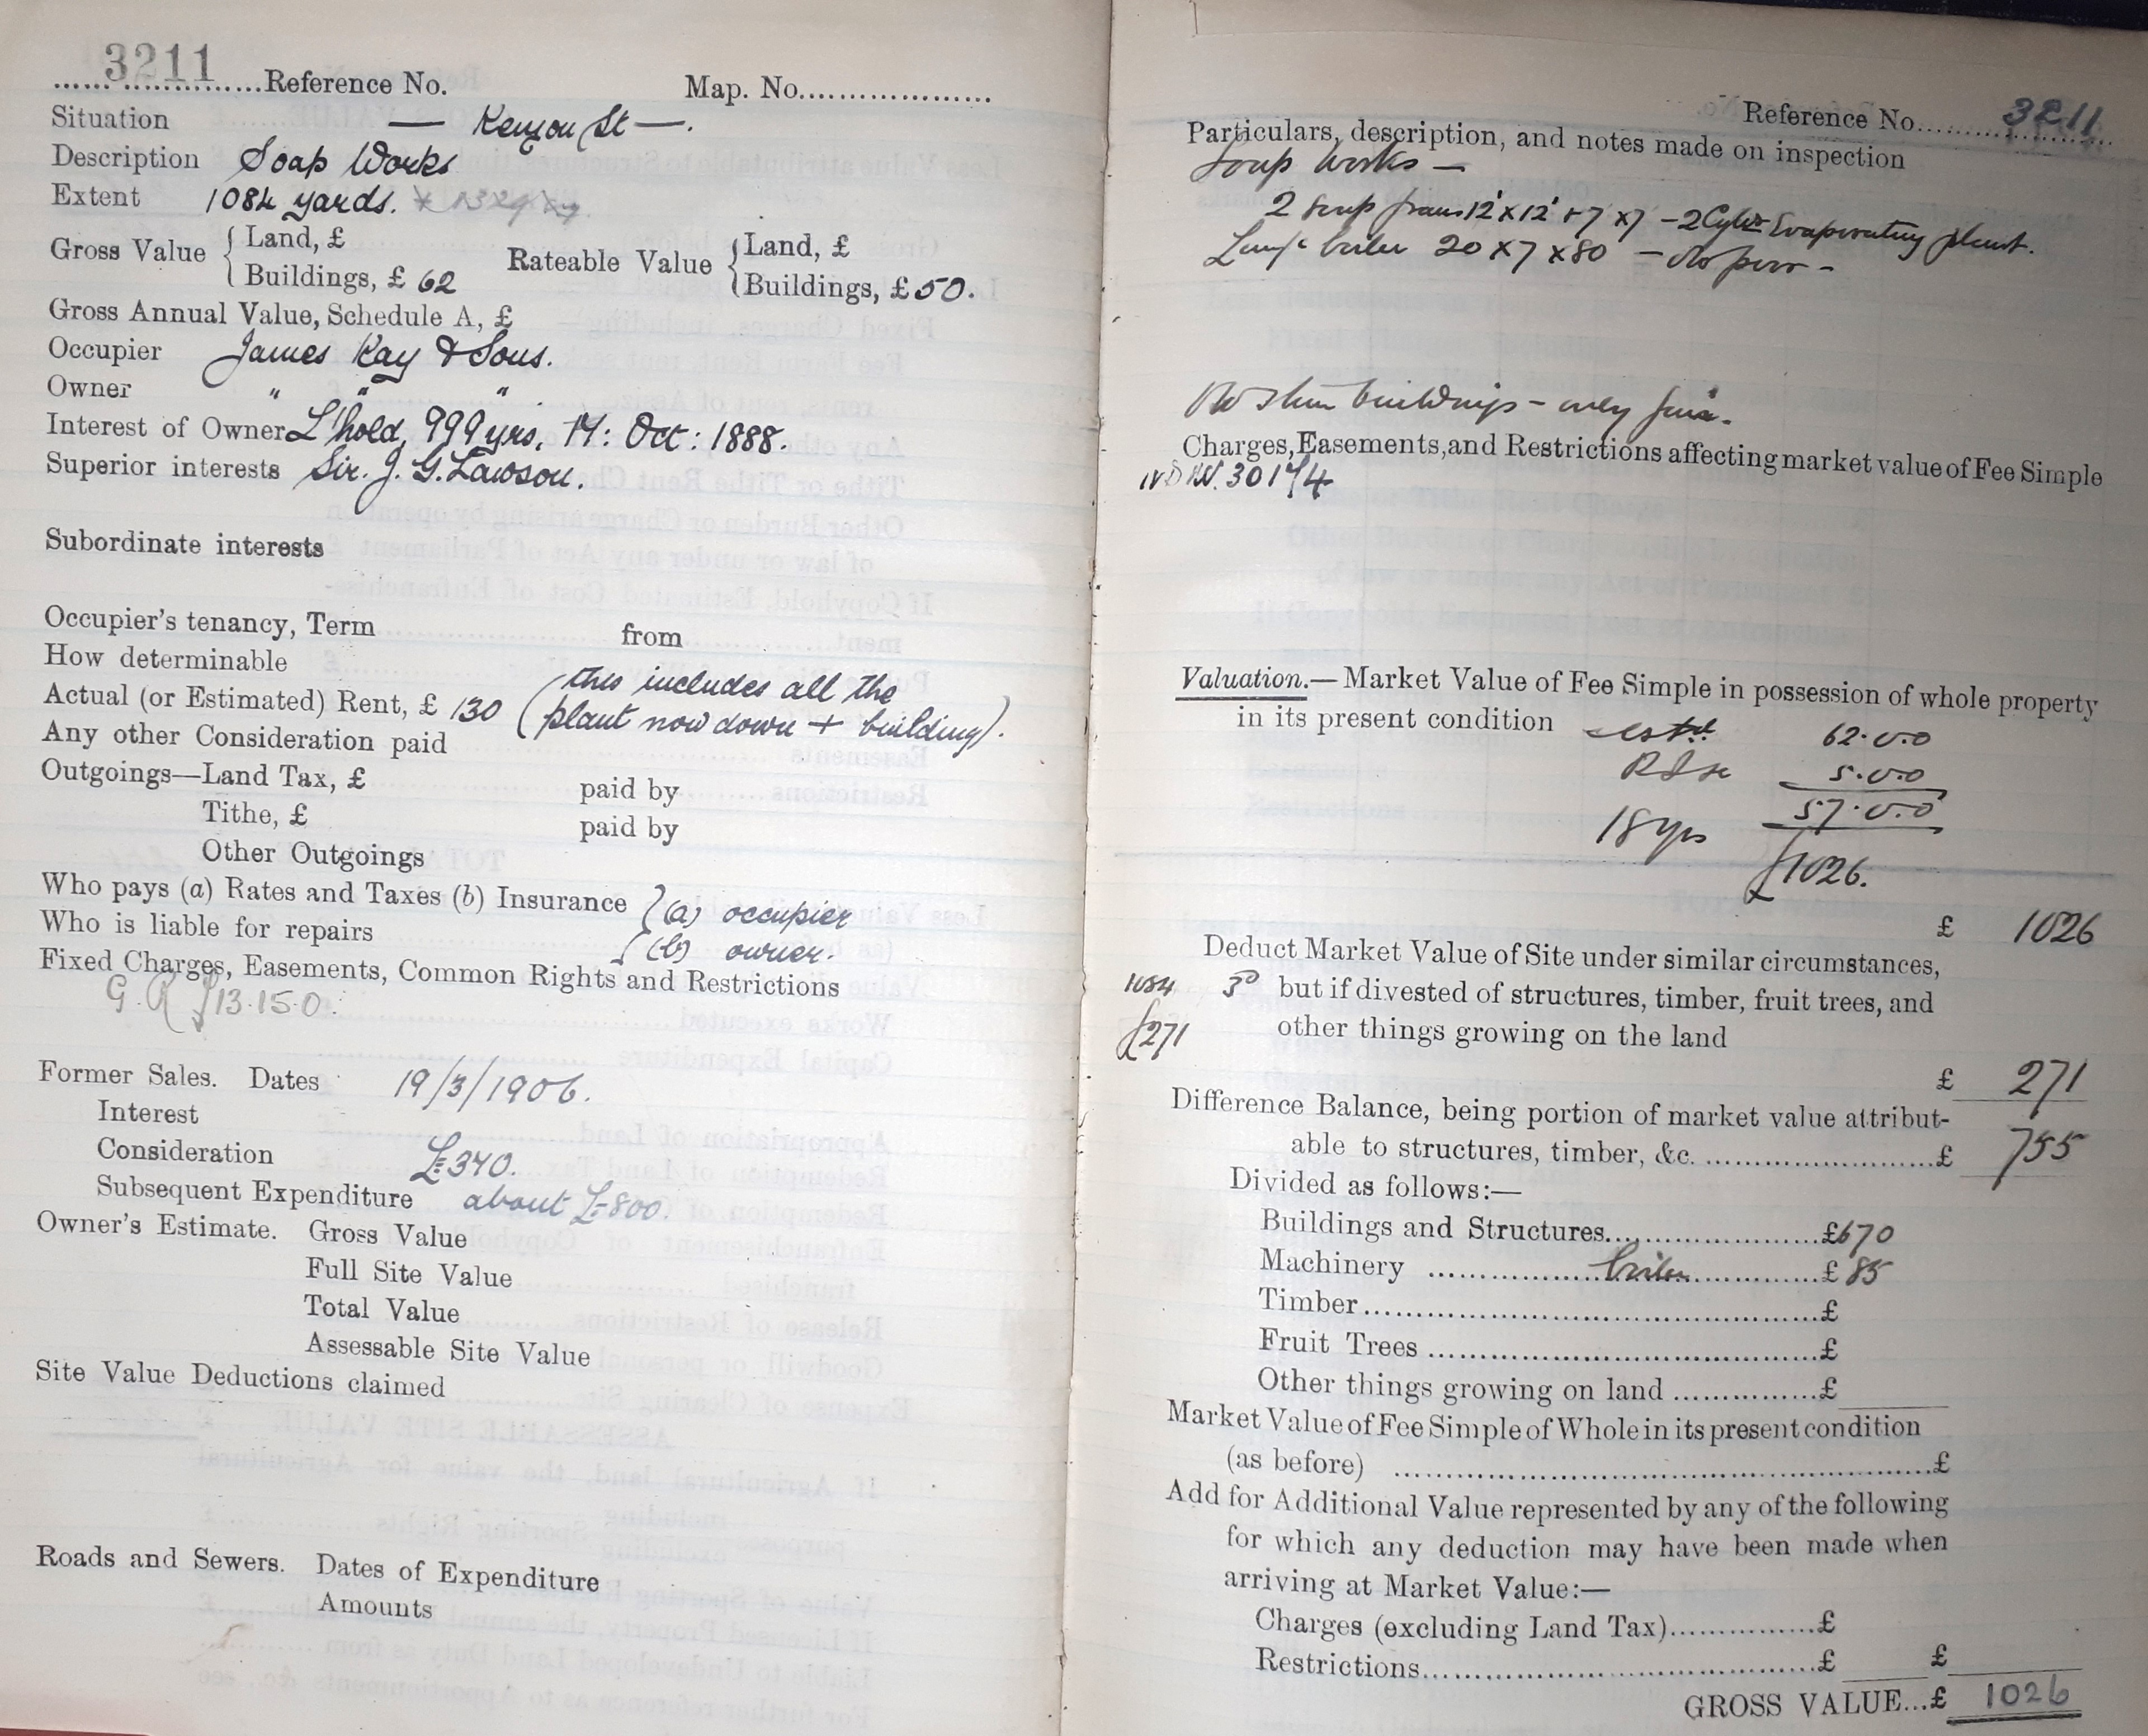 3211 Reference No. Map. No.
Situation — Kenyon St —.
Description Soap Works
Extent 1084 yards.
Gross Value { Land, £ Rateable Value { Land, £
Buildings, £ 62 Buildings, £ 50.
Gross Annual Value, Schedule A, £
Occupier James Kay & Sons.
Owner " " "
Interest of Owner L'hold, 999 yrs, 17: Oct: 1888.
Superior interests Sir. J. G. Lawson.
Subordinate interests
Occupier's tenancy, Term from
How determinable
Actual (or Estimated) Rent, £ 130 (this includes all the
plant now down + building).
Any other Consideration paid
Outgoings—Land Tax, £ paid by
Tithe, £ paid by
Other Outgoings
Who pays (a) Rates and Taxes (b) Insurance } (a) occupier
Who is liable for repairs (b) owner.
Fixed Charges, Easements, Common Rights and Restrictions
G. R £13.15.0.
Former Sales. Dates 19/3/1906.
Interest
Consideration £340.
Subsequent Expenditure about £800.
Owner's Estimate. Gross Value
Full Site Value
Total Value
Assessable Site Value
Site Value Deductions claimed
Roads and Sewers. Dates of Expenditure
Amounts
Reference No. 3211
Particulars, description, and notes made on inspection
Soap Works —
2 Soap pans 12' x 12' + 7 x 7 — 2 Cyldr Evaporating plant.
boiler 20 x 7 x 80 —
buildings — only fair.
Charges, Easements, and Restrictions affecting market value of Fee Simple
301
Valuation.— Market Value of Fee Simple in possession of whole property
in its present condition estd 62.0.0
5.0.0
57.0.0
18 yrs
£1026.
£ 1026
Deduct Market Value of Site under similar circumstances,
1084 but if divested of structures, timber, fruit trees, and
£271 other things growing on the land
£ 271
Difference Balance, being portion of market value attribut-
able to structures, timber, &c. £ 755
Divided as follows:—
Buildings and Structures £670
Machinery boiler £ 85
Timber £
Fruit Trees £
Other things growing on land £
Market Value of Fee Simple of Whole in its present condition
(as before) £
Add for Additional Value represented by any of the following
for which any deduction may have been made when
arriving at Market Value:—
Charges (excluding Land Tax) £
Restrictions £ £
GROSS VALUE...£ 1026